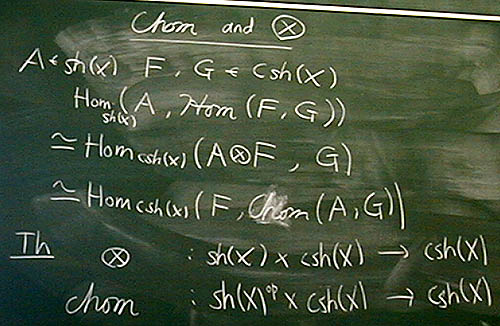 Chom and ⊗
A ∈ sh(X) F, G ∈ Csh(X)
Hom sh(X) (A, Hom (F, G))
≃ Hom csh(X) (A⊗F, G)
≃ Hom csh(X) (F, Chom (A, G))
Th ⊗ : sh(X) × csh(X) → csh(X)
Chom : sh(X)^op × csh(X) → csh(X)